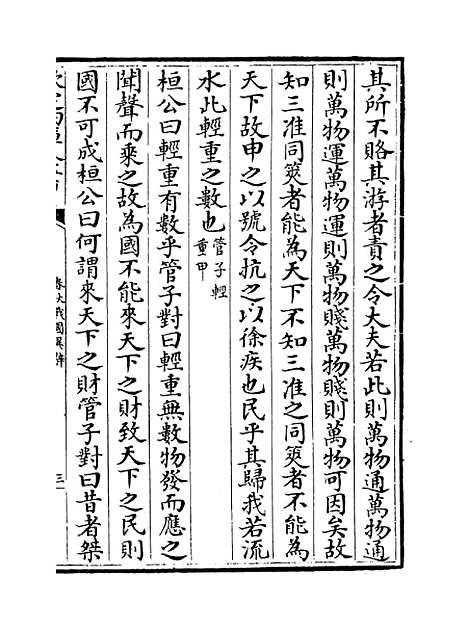 其所不賂其游者責之令大夫若此則萬物通萬物通
則萬物運萬物運則萬物賤萬物賤則萬物可因矣故
知三准同筴者能為天下不知三准之同筴者不能為
天下故申之以號令抗之以徐疾也民乎其歸我若流
水此輕重之數也管子輕
重甲
桓公曰輕重有數乎管子對曰輕重無數物發而應之
聞聲而乘之故為國不能來天下之財致天下之民則
國不可成桓公曰何謂來天下之財管子對曰昔者桀
春秋戰國異辭
三